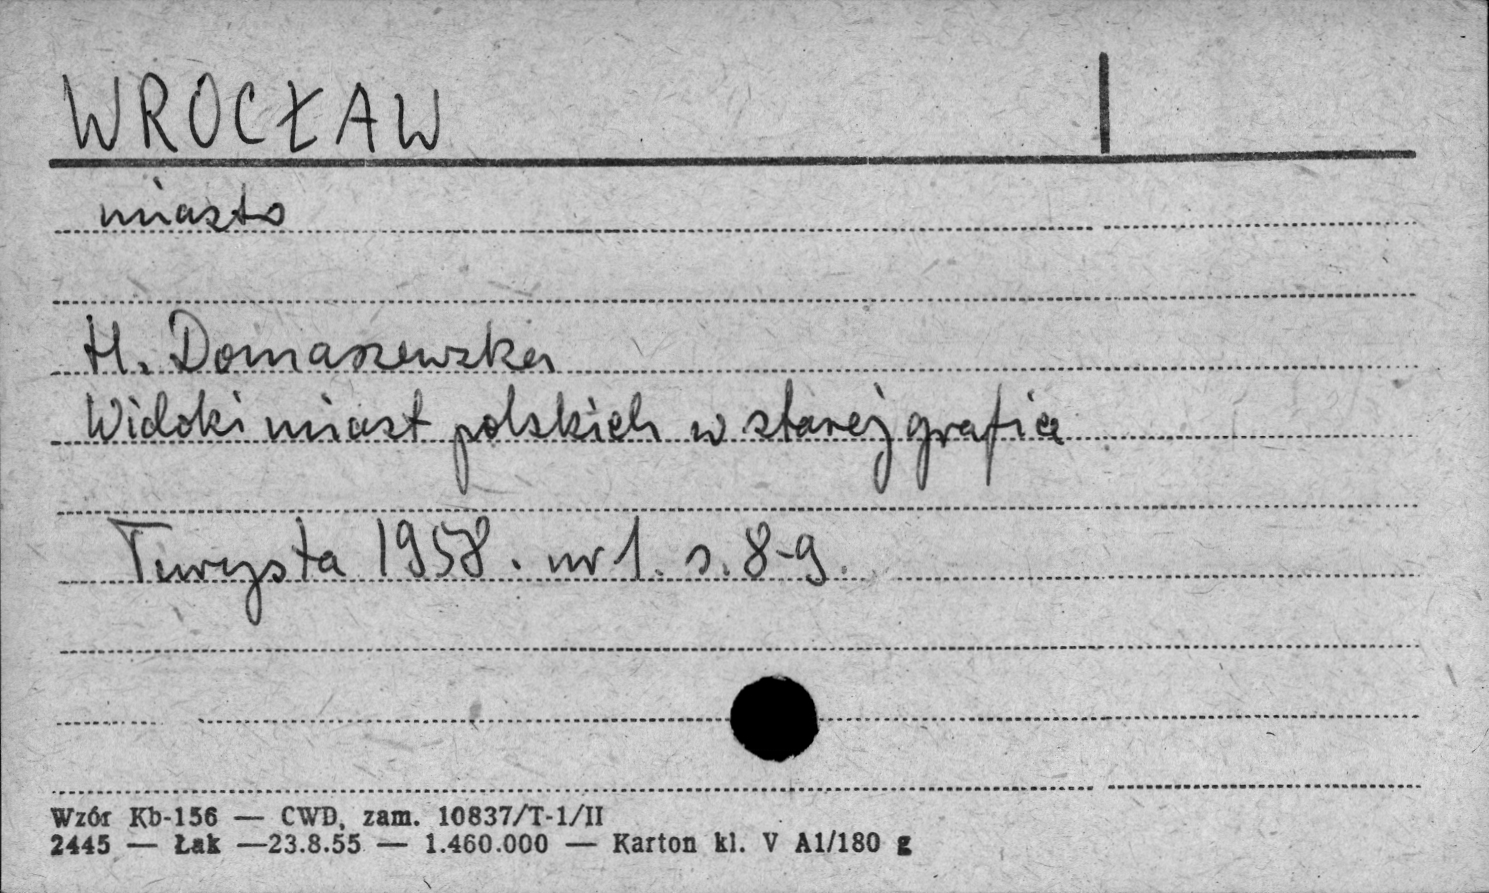 WROCŁAW
miasto
H. Domaszewska
Widoki miast polskich w starej grafice
Turysta 1958. nr 1. s. 8-9.
Wzór Kb-156 — CWD, zam. 10837/T-1/II
2445 — Łak —23.8.55 — 1.460.000 — Karton kl. V A1/180 g